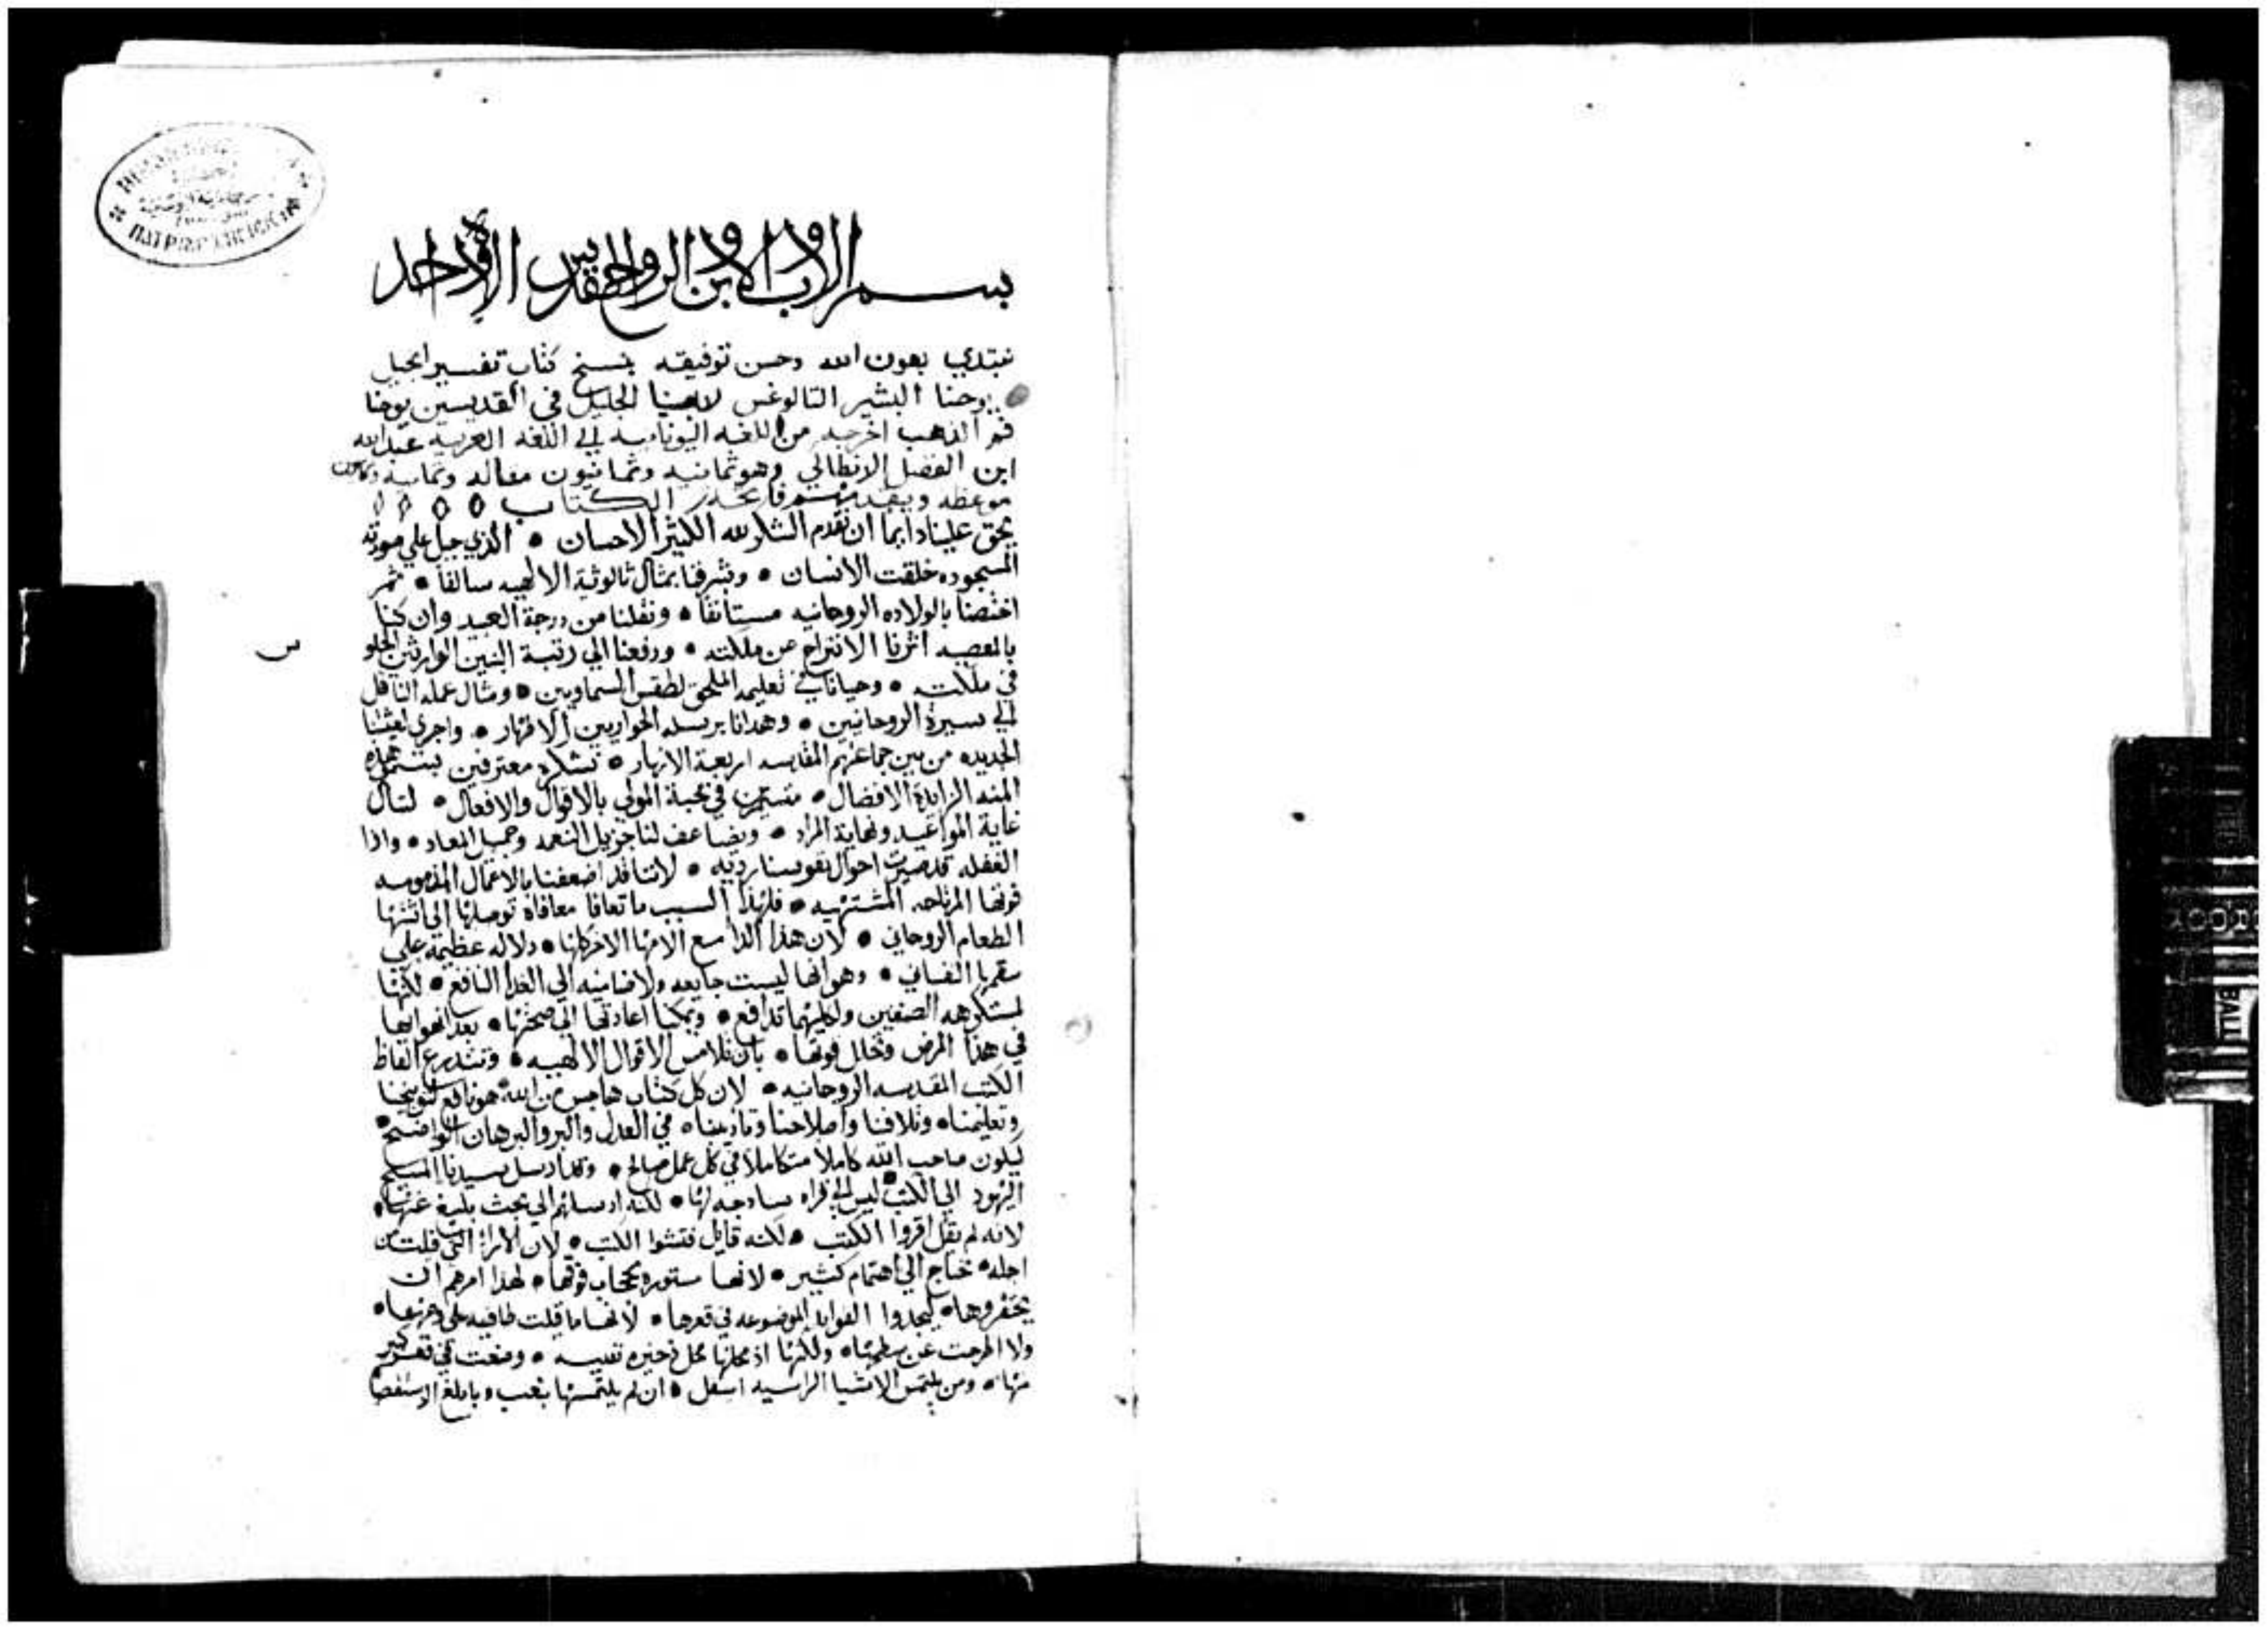 بسم الاب والابن والروح القدس الاله الواحد
نبتدي بعون الله وحسن توفيقه بنسخ كتاب تفسير انجيل
يوحنا البشير التالوغس لابينا الجليل في القديسين يوحنا
فم الذهب اخرجه من اللغه اليونانيه الي اللغه العربيه عبدالله
ابن الفضل الانطاكي وهو ثمانيه وثمانيون مقاله وثمانيه وثمانون
موعظه ويتقدمهم فاتحة الكتاب
يحق علينا دايما ان نقدم الشكر لله الكثير الاحسان • الذي جبل علي صورته
المسجوده خلقت الانسان • وشرفنا بمثال ثالوثية الالهيه سالفا • ثم
اختصنا بالولاده الروحانيه مستانفا • ونقلنا من درجة العبيد وان كنا
بالمعصيه اثرنا الانتزاح عن ملكته • ورفعنا الي رتبة البنين الوارثين
في ملكته • وحيانا في تعليمه الملحق لطقس السماويين • ومثال عمله الناقل
الي سيرة الروحانيين • وهدانا برسله الحواريين الاطهار • واجري
الجديده من بين جماعتهم المقدسه اربعة الانهار • نشكره معترفين
المنه الزايدة الافضال • في محبة المولي بالاقوال والافعال • لننال
غاية المواعيد ونهاية المراد • ويضاعف لنا جزيل النعمه وجميل المعاد • واذا
الغفله قد صيرت احوال نفوسنا رديه • لاننا قد اضعفنا بالاعمال المذمومه
قوتها المرتاحه المشتهيه • فلهذا السبب ما تعافا معافاة توصلها الي
الطعام الروحاني • لان هذا الدا مع الامها الاخر كلها • دلاله عظيمة علي
سقمها النفساني • وهو انها ليست جايعه ولا ضاميه الي الغدا النافع • لكنها
لمستكرهه الصنفين ولكليهما تدافع • ويمكنا اعادتها الي صحتها • بعد
في هذا المرض وتخلل قوتها • بان نلامس الاقوال الالهيه • ونتدرع الفاظ
الكتب المقدسه الروحانيه • لان كل كتاب هاجس من الله هو نافع لتوبيخنا
وتعليمنا • وتلافنا واصلاحنا وتاديبنا • في العدل والبر والبرهان الواضح •
ليكون صاحب الله كاملا متكاملا في كل عمل صالح • وقد ارسل سيدنا المسيح
اليهود الي الكتب ليس الي قراه سادجه لها • لكنه ارسلهم الي بحث بليغ عنها •
لانه لم يقل اقروا الكتب • لكنه قايل فتشوا الكتب • لان الارا التي قلت من
اجله • تحتاج الي اهتمام كثير • لانها مستوره بحجاب فوقها • لهذا امرهم ان
يحتفروها • ليجدوا الفوايد الموضوعه في قعرها • لانها ما قلت طافيه علي
ولا اطرحت عن سطحها • ولكنها اذ محلها محل ذخيره نفيسه • وضعت في قعر كبير
منها • ومن يلتمس الاشيا الراسيه اسفل • ان لم يلتمسها بتعب • وبابلغ الاستقصا